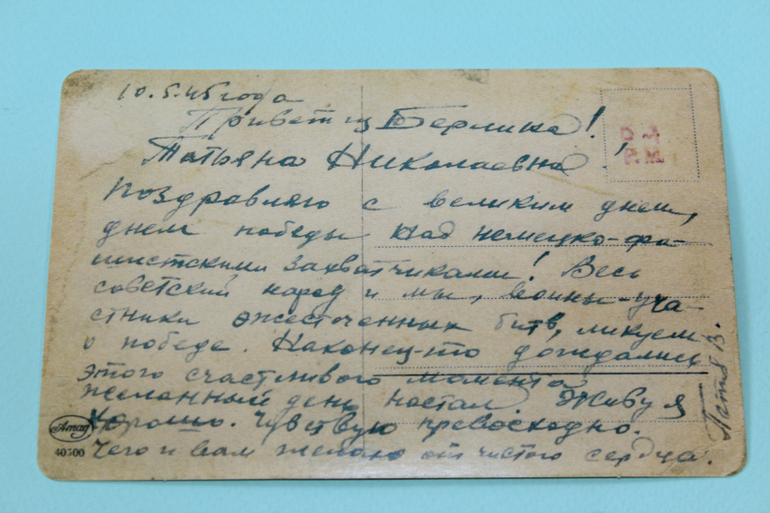 10.5.45 года
Привет из Берлина!
Татьяна Николаевна!
Поздравляю с великим днем,
днем победы над немецко-фа-
шистскими захватчиками! Весь
советский народ и мы, воины-уча-
стники ожесточенных битв, ликуем
о победе. Наконец-то дождались
этого счастливого момента
желанный день настал. Живу я
хорошо. Чувствую превосходно.
Чего и вам желаю от чистого сердца.
Amag
40500